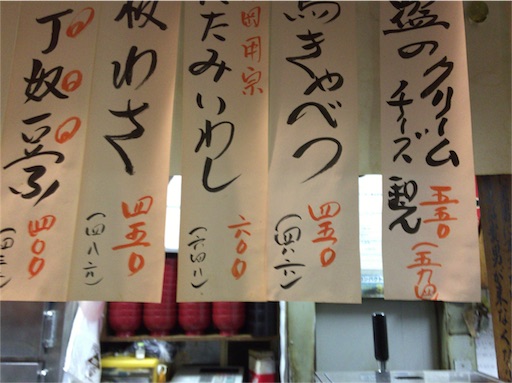 盛のクリーム
チーズ和え
五五〇
(五九四)
馬きゃべつ
四五〇
(四八六)
たたみいわし
固用宗
六〇〇
(六四八)
板わさ
四五〇
(四八六)
丁奴
四〇〇